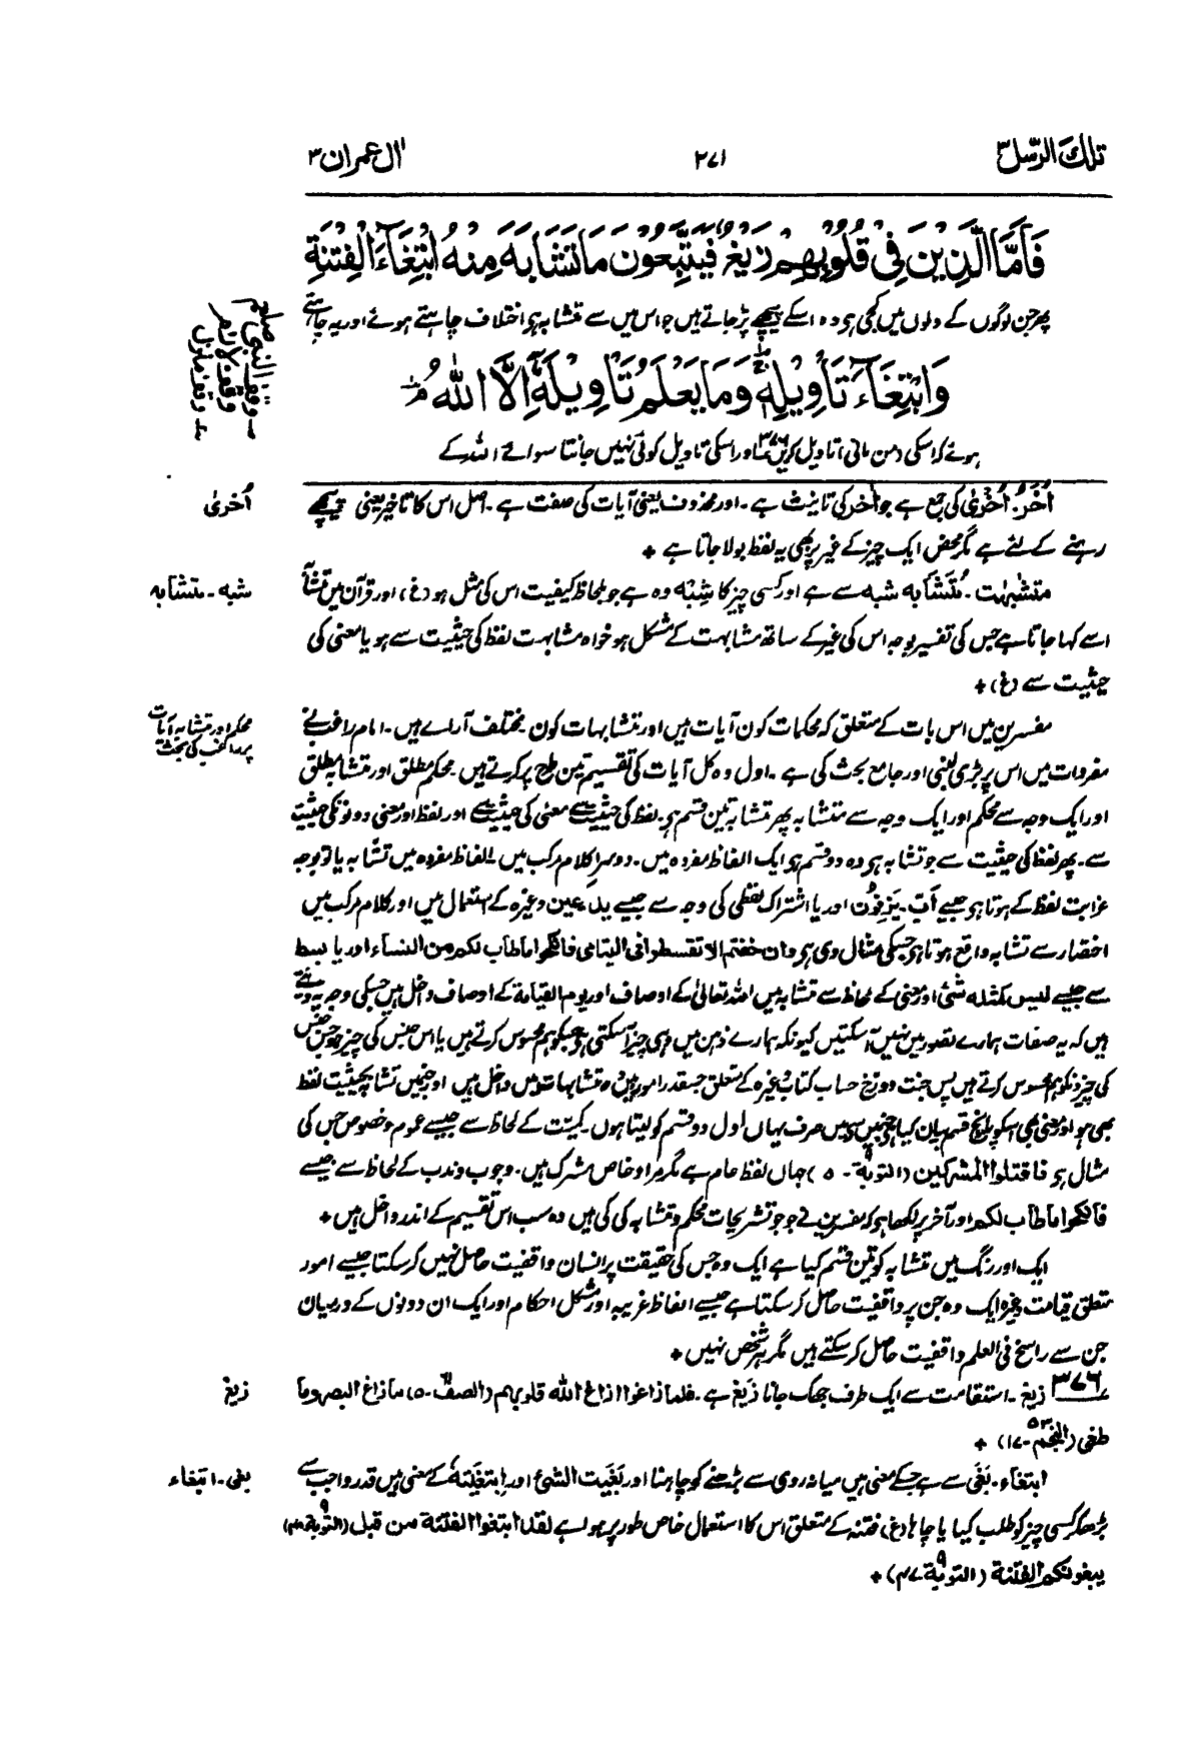 تلک الرسل ۳
۲۷۱
اٰل عمران ۳
فَاَمَّا الَّذِیْنَ فِیْ قُلُوْبِهِمْ زَیْغٌ فَیَتَّبِعُوْنَ مَا تَشَابَهَ مِنْهُ ابْتِغَآءَ الْفِتْنَةِ
پھر جن لوگوں کے دلوں میں کجی ہو وہ اسکے پیچھے پڑ جاتے ہیں جو اس میں سے متشابہ ہو اختلاف چاہتے ہوئے اور یہ چاہتے
وَابْتِغَآءَ تَاْوِیْلِهٖ ج وَمَا یَعْلَمُ تَاْوِیْلَهٗۤ اِلَّا اللّٰهُ م
ہوئے کہ اسکی (من مانی) تاویل کریں ۳۷۶ اور اسکی تاویل کوئی نہیں جانتا سوائے اللہ کے
وقف النبی صلعم
وقف لازم
وقف منزل
اُخَرُ۔ اُخْرٰی کی جمع ہے جو اٰخر کی تانیث ہے۔ اور محذوف یعنی آیات کی صفت ہے۔ اصل اس کا تاخیر یعنی پیچھے
اُخریٰ
رہنے کے لئے ہے مگر محض ایک چیز کے غیر پر بھی یہ لفظ بولا جاتا ہے +
متشٰبہٰت۔ مُتَشَابہ شبہ سے ہے اور کسی چیز کا شِبْہ وہ ہے جو بلحاظ کیفیت اس کی مثل ہو (غ) اور قرآن میں تشابہ
شبہ۔ متشابہ
اسے کہا جاتا ہے جس کی تفسیر بوجہ اس کی غیر کے ساتھ مشابہت کے مشکل ہو خواہ مشابہت لفظ کی حیثیت سے ہو یا معنی کی
حیثیت سے (غ) +
مفسرین میں اس بات کے متعلق کہ محکمات کون آیات ہیں اور متشابہات کون مختلف آرا ہیں۔ امام راغب نے
محکم اور متشابہ آیات
پر راغب کی بحث
مفردات میں اس پر بڑی لمبی اور جامع بحث کی ہے۔ اول وہ کل آیات کی تقسیم تین طرح پر کرتے ہیں۔ محکم مطلق اور متشابہ مطلق
اور ایک وجہ سے محکم اور ایک وجہ سے متشابہ پھر متشابہ تین قسم ہو۔ لفظ کی حیثیت سے معنی کی حیثیت سے اور لفظ اور معنی دونوں کی حیثیت
سے۔ پھر لفظ کی حیثیت سے جو تشابہ ہو وہ دو قسم ہو ایک الفاظ مفردہ میں۔ دوسرا کلام مرکب میں الفاظ مفردہ میں تشابہ یا تو بوجہ
غرابت لفظ کے ہوتا ہو جیسے اَبّ۔ یَزِفُّون اور یا اشتراک لفظی کی وجہ سے جیسے ید۔ عین وغیرہ کے استعمال میں اور کلام مرکب میں
اختصار سے تشابہ واقع ہوتا ہو جسکی مثال دی ہو وان خفتم الا تقسطوا فی الیتامی فانکحوا ما طاب لکم من النساء اور یا بسط
سے جیسے لیس کمثله شئ اور معنی کے لحاظ سے متشابہ ہیں اللہ تعالیٰ کے اوصاف اور یوم القیامة کے اوصاف داخل ہیں جسکی وجہ یہ دیتے
ہیں کہ یہ صفات ہمارے تصور میں نہیں آسکتیں کیونکہ ہمارے ذہن میں وہی چیز آسکتی ہو جسکو ہم محسوس کرتے ہیں یا اس جنس کی چیز جو جس جنس
کی چیزونکو ہم محسوس کرتے ہیں پس جنت دوزخ حساب کتاب وغیرہ کے متعلق جسقدر امور ہیں وہ متشابہات میں داخل ہیں اور جنمیں تشابہ بحیثیت لفظ
بھی ہو اور معنی بھی اسکو پانچ قسم بیان کیا ہو جنمیں سے میں صرف یہاں اول دو قسم کو لیتا ہوں۔ کمیّت کے لحاظ سے جیسے عموم وخصوص جس کی
مثال ہو فاقتلوا المشرکین (التوبة۹۔ ۵) جہاں لفظ عام ہے مگر مراد خاص مشرک ہیں۔ وجوب وندب کے لحاظ سے جیسے
فانکحوا ما طاب لکم اور آخر پر لکھا ہو کہ مفسرین نے جو جو تشریحات محکم ومتشابہ کی کی ہیں وہ سب اس تقسیم کے اندر داخل ہیں +
ایک اور رنگ میں متشابہ کو تین قسم کیا ہے ایک وہ جس کی حقیقت پر انسان واقفیت حاصل نہیں کر سکتا جیسے امور
متعلق قیامت وغیرہ ایک وہ جن پر واقفیت حاصل کر سکتا ہے جیسے الفاظ غریبہ اور مشکل احکام اور ایک ان دونوں کے درمیان
جن سے راسخ فی العلم واقفیت حاصل کر سکتے ہیں مگر ہر شخص نہیں +
۳۷۶ زیغ۔ استقامت سے ایک طرف جھک جانا زَیغ ہے۔ فلما زاغوا ازاغ الله قلوبهم (الصفّ ۶۱۔ ۵) ما زاغ البصر وما
زیغ
طغی (النجم ۵۳۔ ۱۷) +
ابتغاء۔ بَغْی سے ہے جسکے معنی ہیں میانہ روی سے بڑھنے کو چاہنا اور بَغَیت الشئ اور ابتغیته کے معنی ہیں قدر واجب سے
بغی۔ ابتغاء
بڑھکر کسی چیز کو طلب کیا یا چاہا (غ) فتنہ کے متعلق اس کا استعمال خاص طور پر ہوا ہے لقد ابتغوا الفتنة من قبل (التوبة۹۔ ۴۸)
یبغونکم الفتنة (التوبة۹۔ ۴۷) +